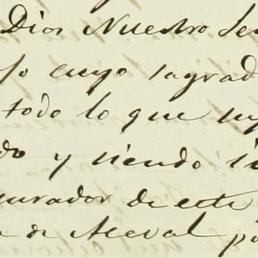 Dios Nuestro Se
jo cuyo sagrad
todo lo que su
do y siendo i
curador de este
a de Aceval po